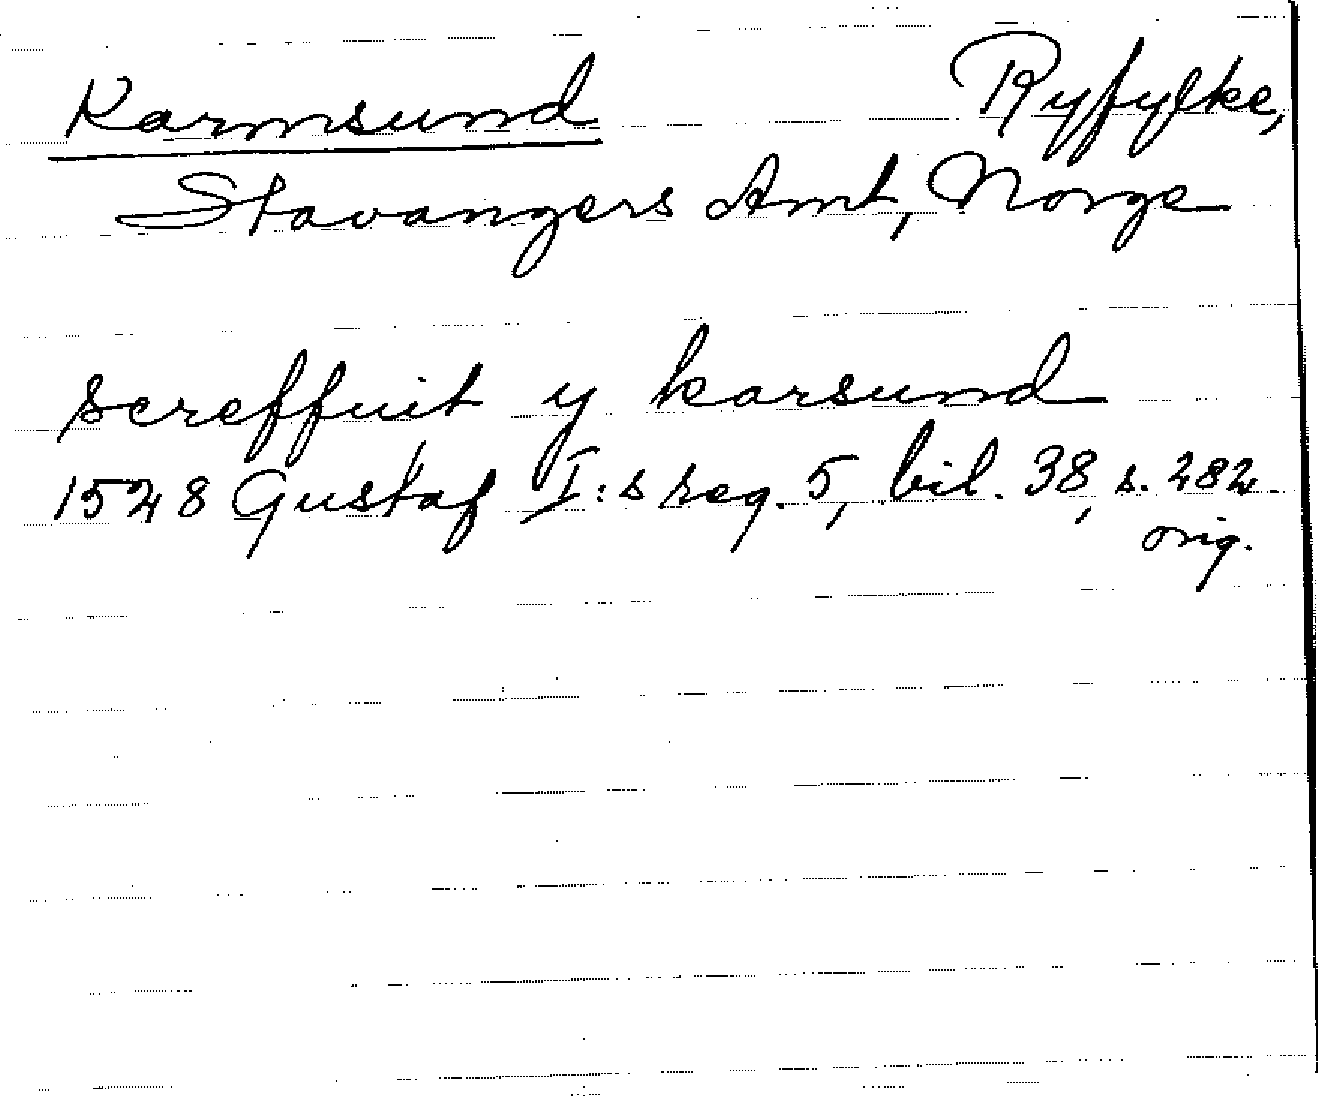 Karmsund Ryfylke,
Stavangers Amt, Norge
screffuit y karsund
1528 Gustaf I:s reg. 5, bil. 38, s. 282.
orig.